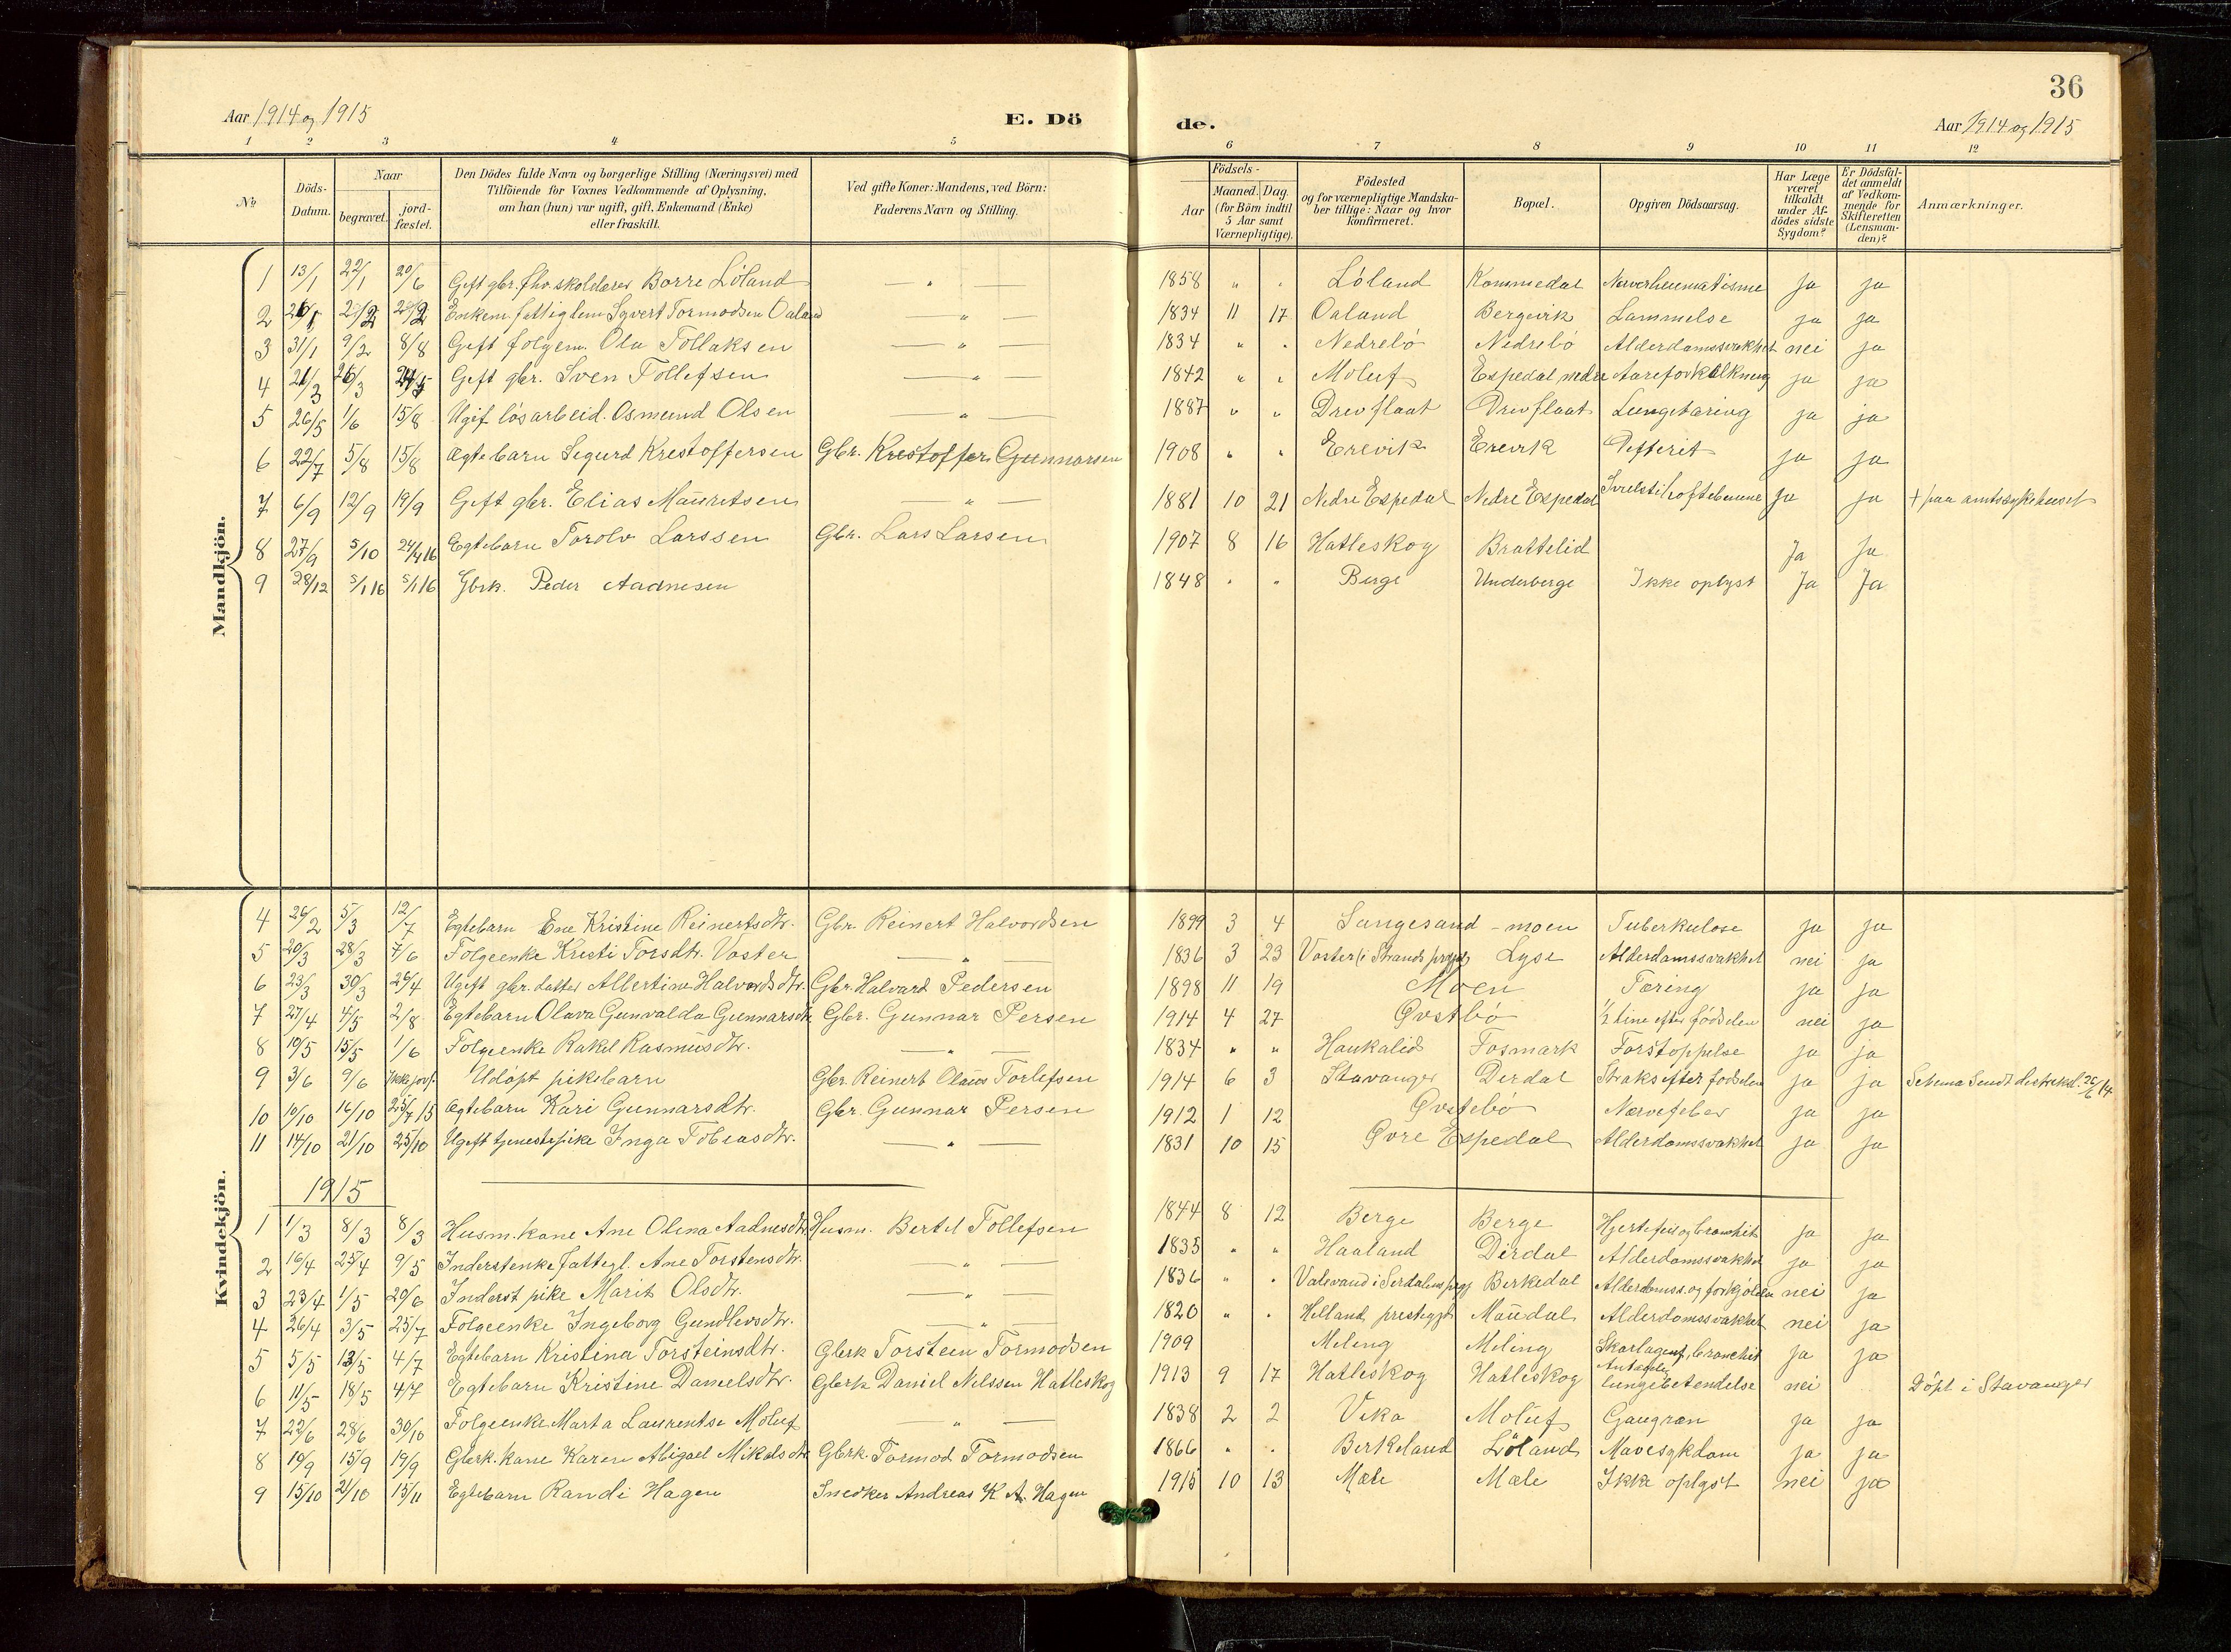 36
Aar 1914 og 1915
E. Dö
de.
Aar 1914 og 1915
1 2 3 4 5 6 7 8 9 10 11 12
No
Döds-Datum.
Naar
begravet.
jord-fæstet.
Den Dödes fulde Navn og borgerlige Stilling (Næringsvei) med
Tilföiende for Voxnes Vedkommende af Oplysning,
om han (hun) var ugift, gift, Enkemand (Enke)
eller fraskilt.
Ved gifte Koner: Mandens, ved Börn:
Faderens Navn og Stilling.
Födsels-
Aar
Maaned. Dag.
(for Börn indtil
5 Aar samt
Værnepligtige).
Födested
og for værnepligtige Mandska-
ber tillige: Naar og hvor
konfirmeret.
Bopæl.
Opgiven Dödsaarsag.
Har Læge
været
tilkaldt
under Af-
dödes sidste
Sygdom?
Er Dödsfal-
det anmeldt
af Vedkom-
mende for
Skifteretten
(Lensman-
den)?
Anmærkninger.
Mandkjön.
1 13/1 22/1 20/6 Gift gbr. fhv. skolelærer Borre Löland — " — 1858 " " Löland Kommedal Nerverheumatisme ja ja
2 26/1 2/2 Enkem. fattiglem Syvert Tormodsen Oaland — " — 1834 11 17 Oaland Bergevik Lammelse ja ja
3 31/1 9/2 8/8 Gift folgem. Ola Tollaksen — " — 1834 " " Nedrebö Nedrebö Alderdomssvakhet nei ja
4 21/3 26/3 24/5 Gift gbr. Sven Tollefsen — " — 1842 " " Moluf Espedal nedre Aareforkalkning ja ja
5 26/5 1/6 15/8 Ugif lösarbeid. Osmund Olsen — " — 1887 " " Drevflaat Drevflaat Lungetæring ja ja
6 22/7 5/8 15/8 Ægtebarn Sigurd Kristoffersen Gbr. Kristoffer Gunnarsen 1908 " " Erevik Erevik Difterit ja ja
7 6/9 12/9 19/9 Gift gbr. Elias Mauritsen — " — 1881 10 21 Nedre Espedal Nedre Espedal Svulst i hoftebenene ja ja + paa amtssykehuset
8 27/9 5/10 24/4 16 Egtebarn Torolv Larssen Gbr. Lars Larsen 1907 8 16 Hatleskog Brattelid Ja Ja
9 28/12 5/1 16 5/1 16 Gbrk. Peder Aadnesen 1848 " " Berge Underberge Ikke oplyst Ja Ja
Kvindekjön.
4 24/2 5/3 12/7 Egtebarn Ene Kristine Reinertsdtr. Gbr. Reinert Halvordsen 1899 3 4 Sangesand - moen Tuberkulose ja ja
5 20/3 28/3 7/6 Folgeenke Kristi Torsdtr. Voster — " — 1836 3 23 Voster (i Strands prgj) Lyse Alderdomssvakhet nei ja
6 23/3 30/3 26/4 Ugift gbr. datter Albertine Halvordsdtr. Gbr. Halvard Pedersen 1898 11 19 Moen Tæring ja ja
7 27/4 4/5 2/8 Egtebarn Olava Gunvalda Gunnarsdtr Gbr. Gunnar Persen 1914 4 27 Øvstbö 1/2 time efter födselen nei ja
8 10/5 15/5 1/6 Folgeenke Rakel Rasmusdtr. — " — 1834 " " Haukalid Fosmark Forstoppelse ja ja
9 3/6 9/6 Ikke jordf. Udöpt pikebarn Gbr. Reinert Olaus Torlefsen 1914 6 3 Stavanger Dirdal Straks efter födselen ja ja Schema Sendt distriktsl. 26/6 14
10 10/10 16/10 25/7 15 Ægtebarn Kari Gunnarsdtr. Gbr. Gunnar Persen 1912 1 12 Øvstebö Nervefeber ja ja
11 14/10 21/10 25/10 Ugift tjenestepike Inga Tobiasdtr. — " — 1831 10 15 Øvre Espedal Alderdomssvakhet ja ja
1915
1 1/3 8/3 8/3 Husm. kone Ane Olena Aadnesdtr. Husm. Bertel Tollefsen 1844 8 12 Berge Berge Hjertefeil og bronkit ja ja
2 16/4 25/4 9/5 Inderstenke fattigl. Ane Torstensdtr. — " — 1835 " " Haaland Dirdal Alderdomssvakhet ja ja
3 23/4 1/5 20/6 Inderst pike Marit Olsdtr. — " — 1836 " " Valevand i Serdalens prgj Berkedal Alderdomss. og forkjölelse nei ja
4 26/4 3/5 25/7 Folgeenke Ingeborg Gundlevsdtr. — " — 1820 " " Helland, prestegjd Maudal Alderdomssvakhet nei ja
5 5/5 13/5 4/7 Egtebarn Kristina Torsteinsdtr. Gbrk Torstein Tormodsen 1909 Meling Meling Skarlagensf., bronchit ja ja
6 11/5 18/5 4/7 Egtebarn Kristine Danielsdtr. Gbrk Daniel Nilssen Hatleskog 1913 9 17 Hatleskog Hatleskog lungebetendelse nei Döpt i Stavanger
7 22/6 28/6 30/10 Folgeenke Marta Laurentse Moluf — " — 1838 2 2 Veka Moluf Gangræn ja ja
8 10/9 15/9 19/9 Gbrk. kone Karen Abigael Mikalsdtr. Gbrk. Tormod Tormodsen 1866 " " Berkeland Löland Mavesykdom ja ja
9 15/10 21/10 15/11 Egtebarn Randi Hagen Snedker Andreas K. A. Hagen 1915 10 13 Mæle Mæle Ikke oplyst nei ja